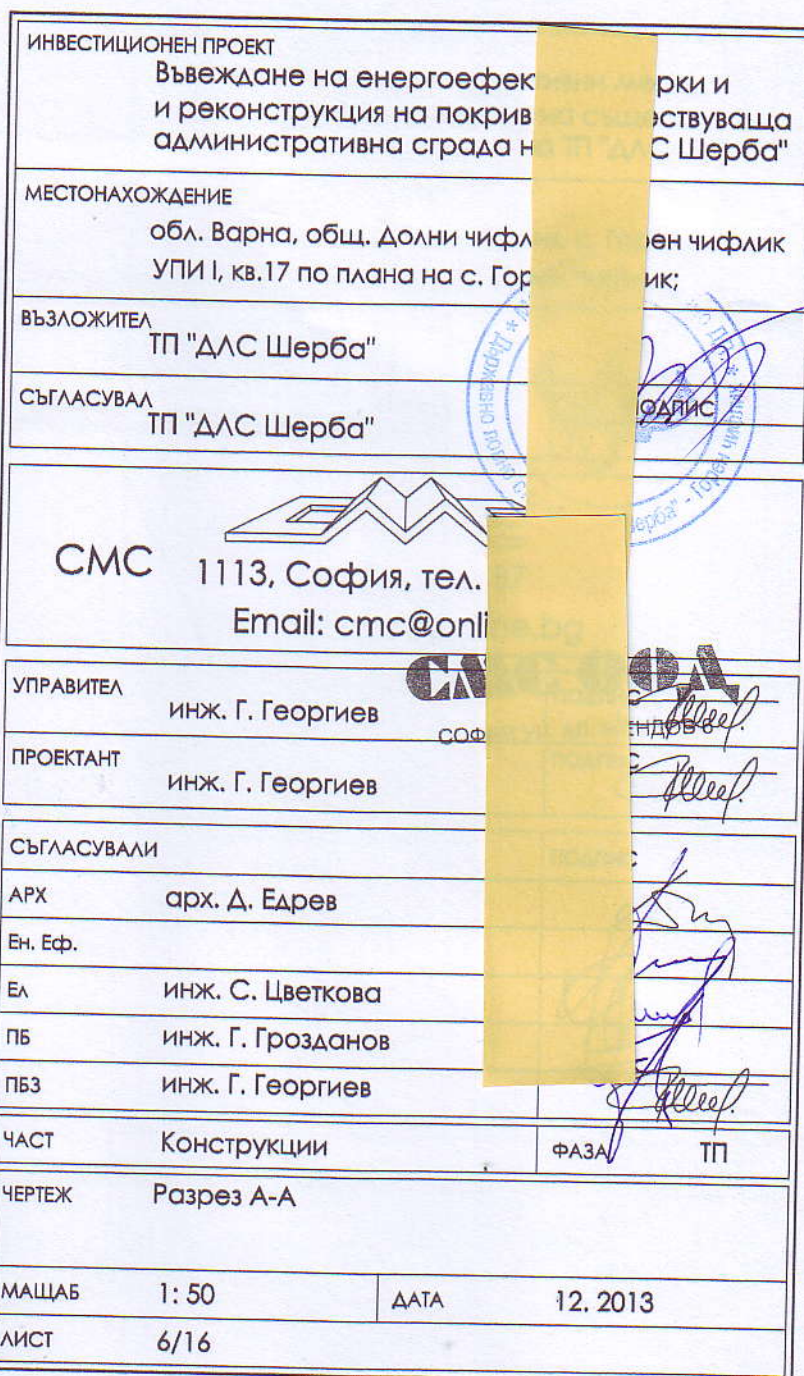 ИНВЕСТИЦИОНЕН ПРОЕКТ
Въвеждане на енергоефек рки и
и реконструкция на покрив ществуваща
административна сграда на ТП "ДЛС Шерба"
МЕСТОНАХОЖДЕНИЕ
обл. Варна, общ. Долни чифлик, с. Горен чифлик
УПИ I, кв.17 по плана на с. Горен чифлик;
ВЪЗЛОЖИТЕЛ
ТП "ДЛС Шерба"
СЪГЛАСУВАЛ ПОДПИС
ТП "ДЛС Шерба"
СМС 1113, София, тел.
Email: cmc@online.bg
СМС ООД
УПРАВИТЕЛ
инж. Г. Георгиев
ПРОЕКТАНТ
инж. Г. Георгиев
СЪГЛАСУВАЛИ
АРХ арх. Д. Едрев
Ен. Еф.
ЕЛ инж. С. Цветкова
ПБ инж. Г. Грозданов
ПБЗ инж. Г. Георгиев
ЧАСТ Конструкции ФАЗА ТП
ЧЕРТЕЖ Разрез А-А
МАЩАБ 1:50 ДАТА 12. 2013
ЛИСТ 6/16